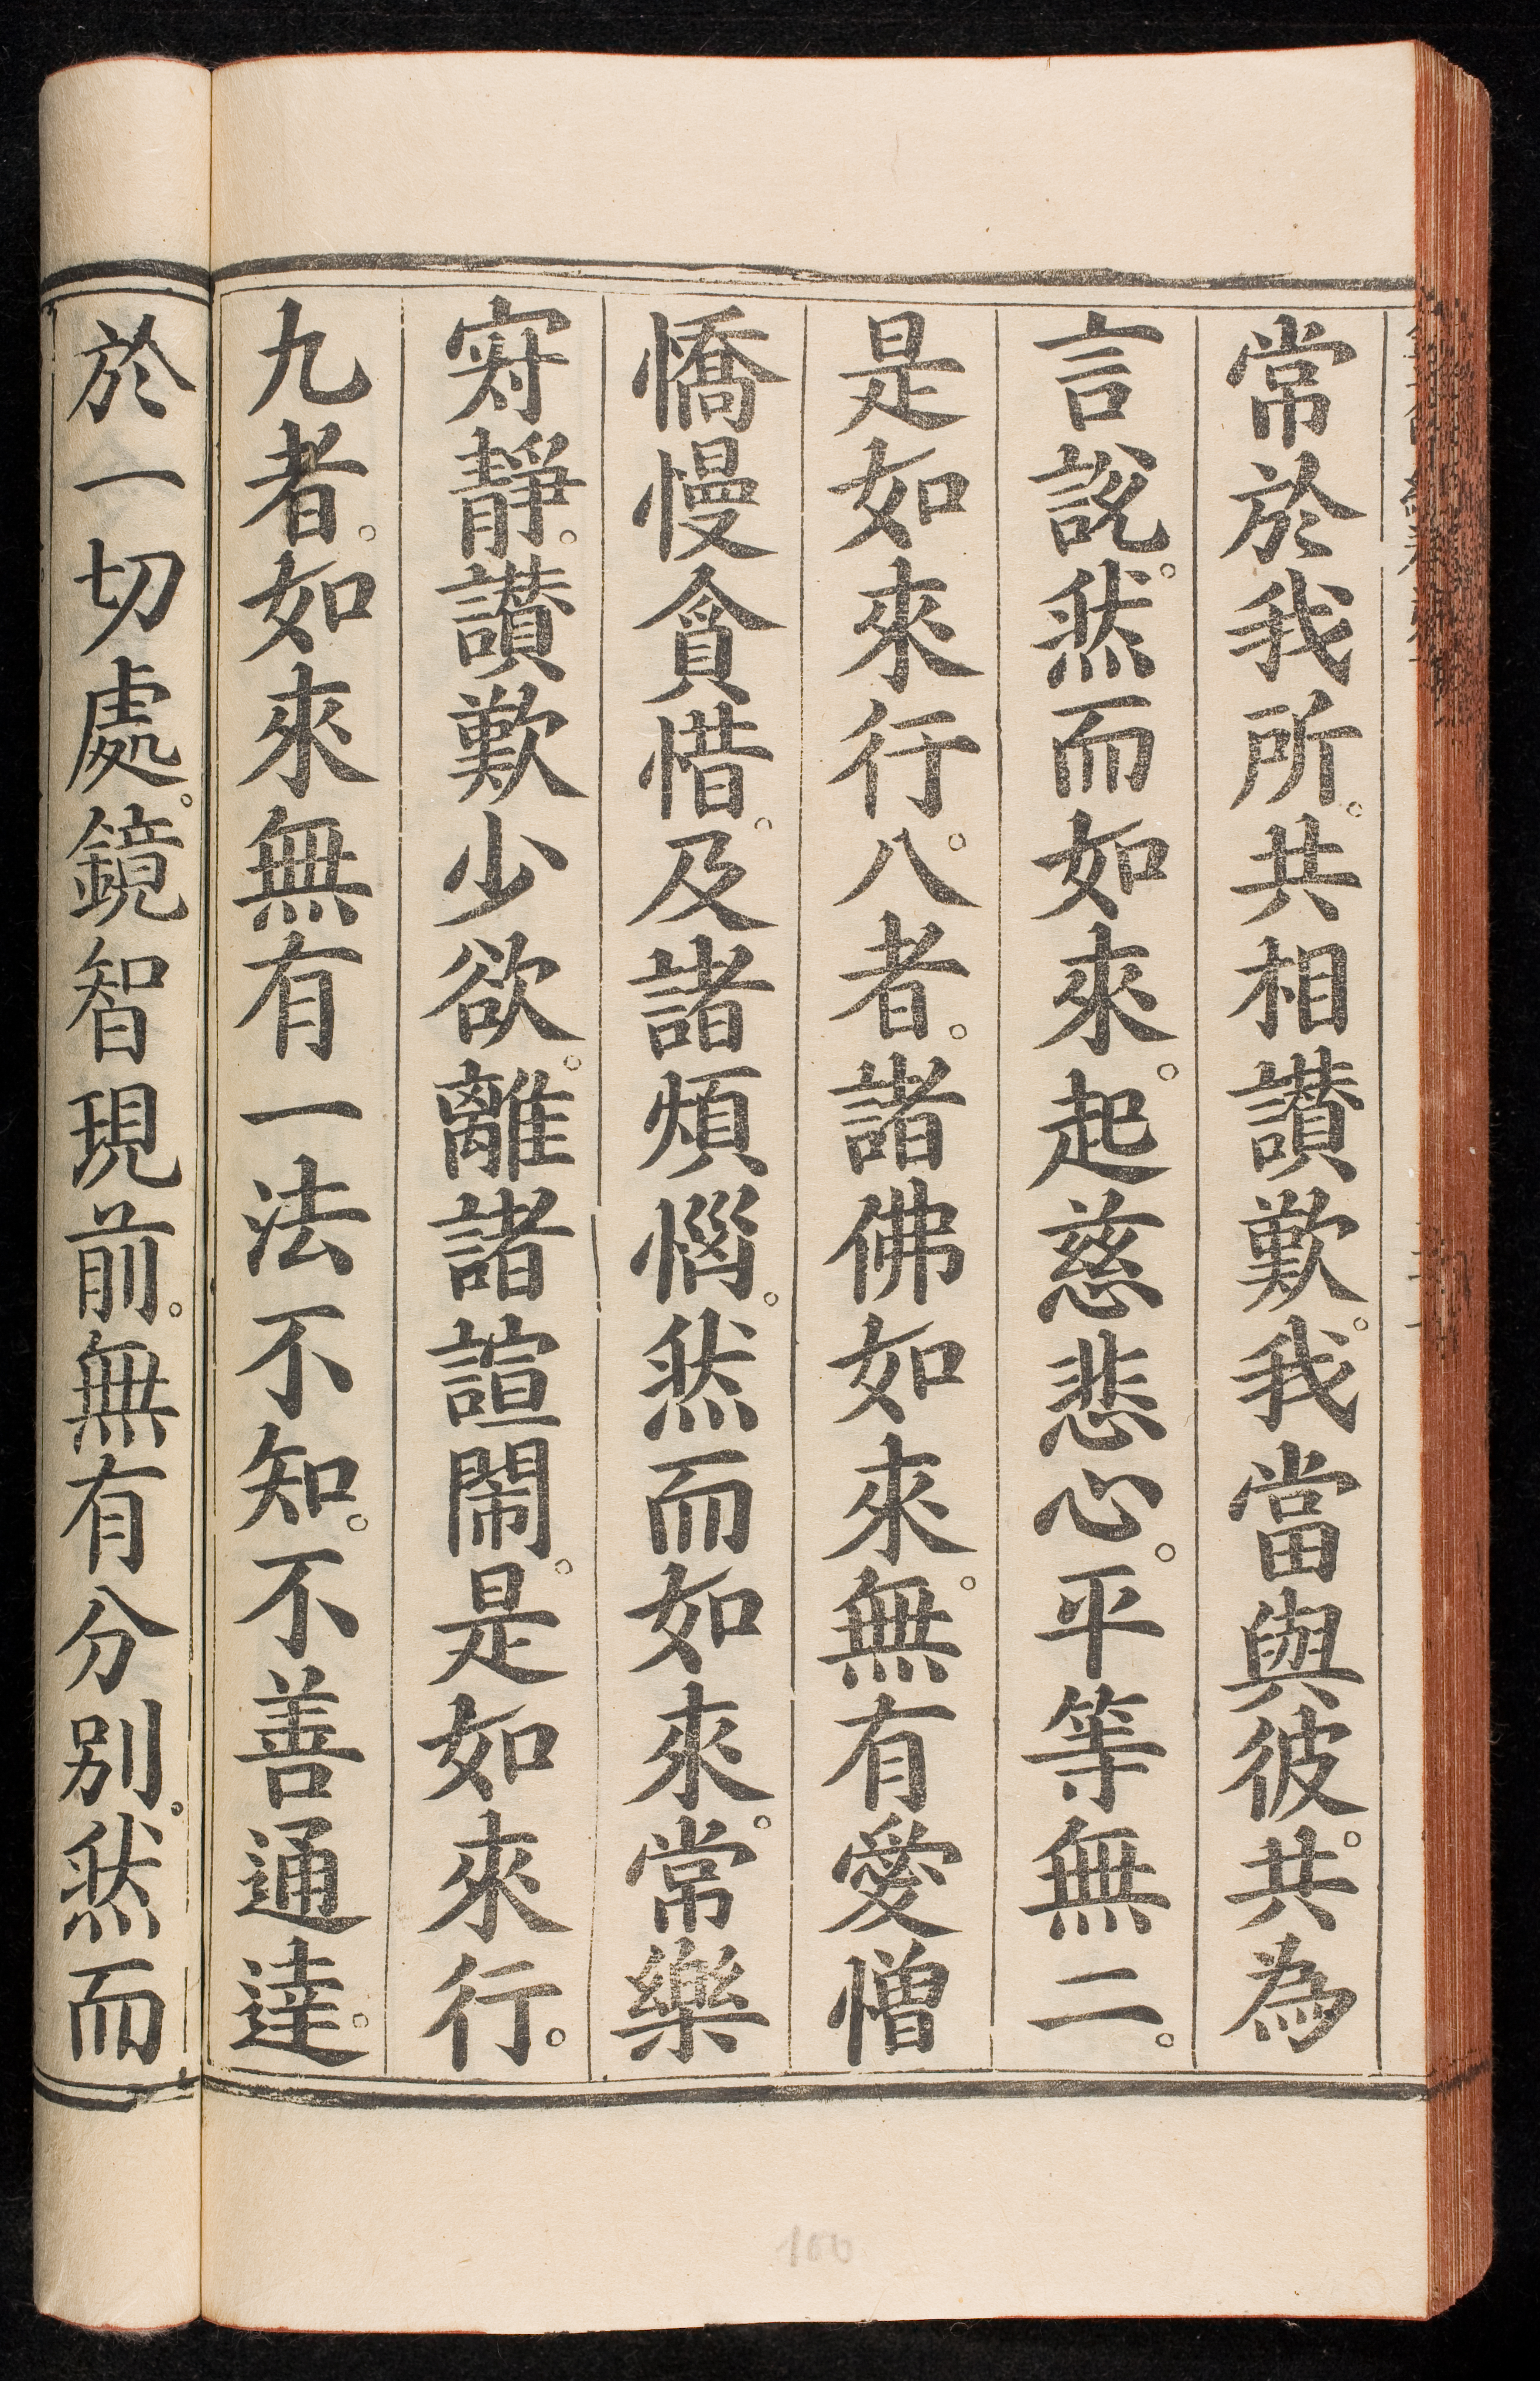 常於我所。共相讃歎。我當與彼。共為
言說。然而如來。起慈悲心。平等無二。
是如來行。八者。諸佛如來。無有愛憎
憍慢貪惜。及諸煩惱。然而如來。常樂
寂靜。讃歎少欲。離諸諠閙。是如來行。
九者。如來無有一法不知。不善通達。
於一切處。鏡智現前。無有分別。然而
100